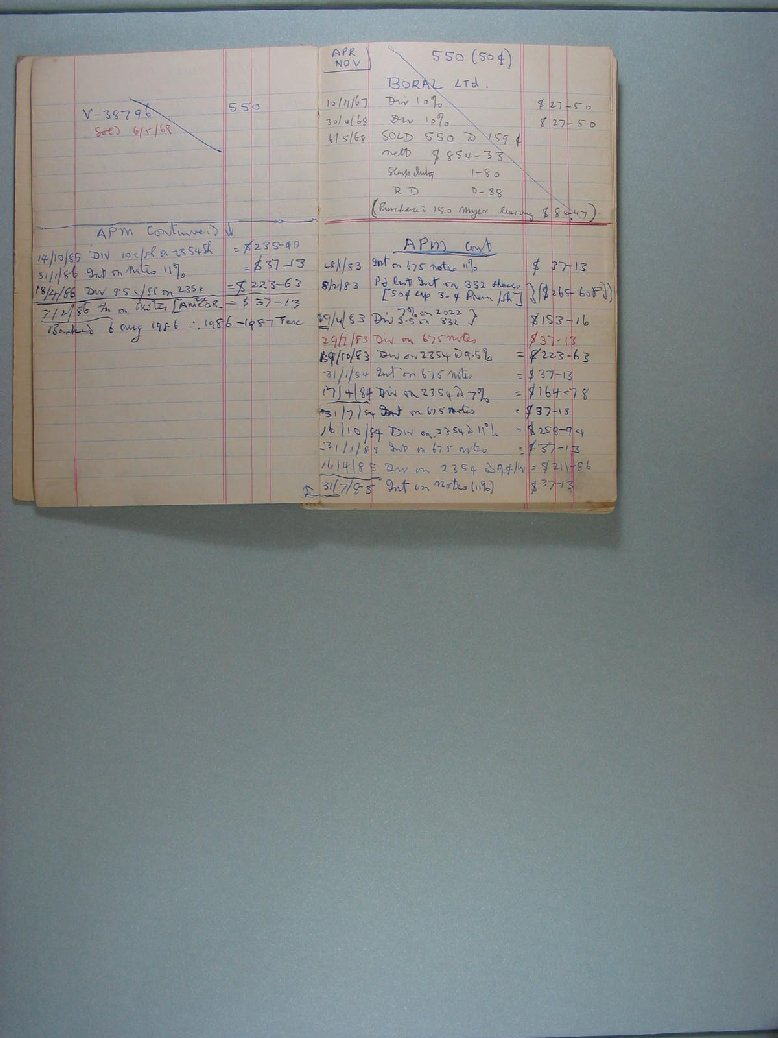 V-38796 550
Sold 6/5/68
APM Continued
14/10/85 Div 10c/sh on 2354sh = $235-40
31/1/86 Int on notes 11% = $37-13
18/4/86 Div 9.5c/sh on 2354 = $223-63
7/2/86 on [AMCOR - $37-13
Banked 6 Aug 1986 ∴ 1986-1987 Tax
APR
NOV
550 (50¢)
BORAL Ltd.
10/11/67 Div 10% $27-50
30/4/68 Div 10% $27-50
6/5/68 SOLD 550 @ 159¢
nett $854-33
Stamp Duty 1-80
R D 0-88
(Purchased 150 Myer leaving $84-47)
APM Cont
Int on 675 notes 11% $37-13
8/2/83 on 332 shares
[50¢ 30¢ Prem/sh] ($265-60Pd)
7% on 2022
/4/83 Div 3.5 on 332 } $153-16
29/7/83 Div on 675 notes $37-13
/10/83 Div on 2354 @ 9.5% = $223-63
31/1/84 Int on 675 notes = $37-13
17/4/84 Div on 2354 @ 7% = $164-78
31/7/84 Int on 675 notes = $37-13
16/10/84 Div on 2354 @ 11% = $258-94
31/1/85 Int on 675 notes = $37-13
16/4/85 Div on 2354 @ 9¢/sh = $211-86
31/7/85 Int on Notes (11%) $37-13